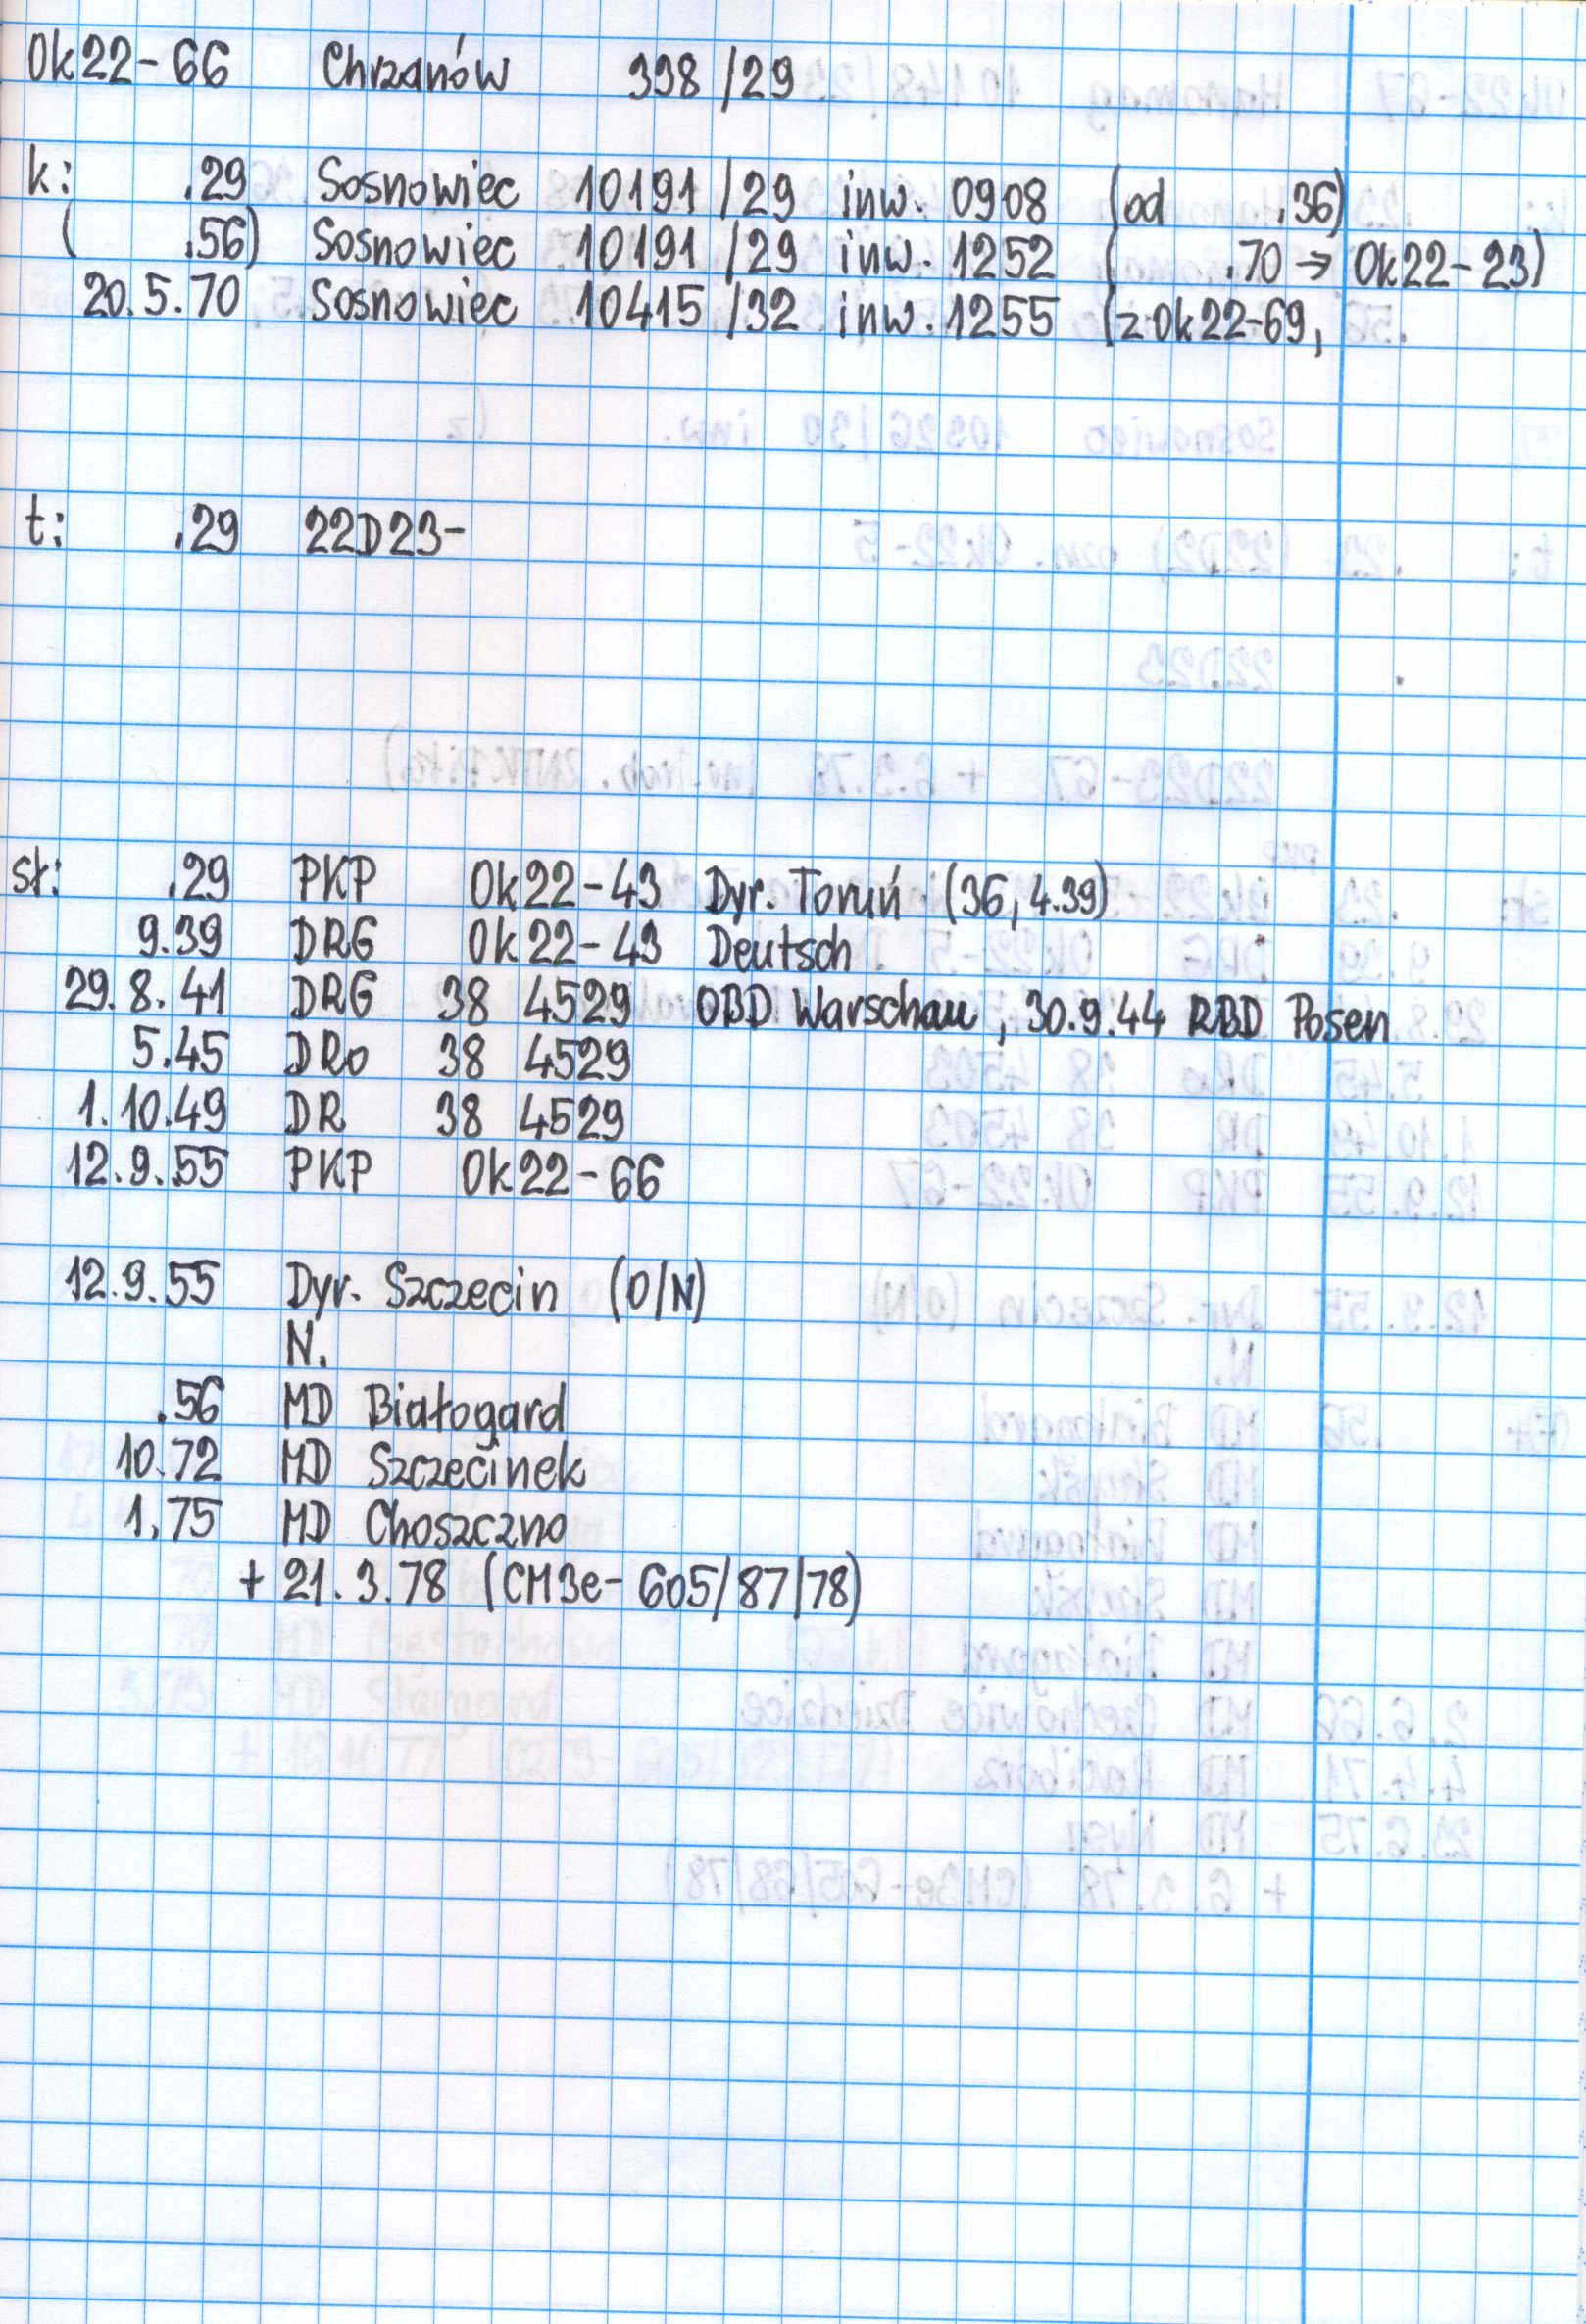 Ok22-66 Chrzanów 338/29
k: .29 Sosnowiec 10191/29 inw. 0908 (od .36)
( .56) Sosnowiec 10191/29 inw. 1252 ( .70 → Ok22-23)
20.5.70 Sosnowiec 10415/32 inw. 1255 (z Ok22-69,
t: .29 22D23-
st: .29 PKP Ok22-43 Dyr. Toruń (36, 4.39)
9.39 DRG Ok22-43 Deutsch
29.8.41 DRG 38 4529 OBD Warschau, 30.9.44 RBD Posen
5.45 DRo 38 4529
1.10.49 DR 38 4529
12.9.55 PKP Ok22-66
12.9.55 Dyr. Szczecin (O/N)
N.
.56 MD Białogard
10.72 MD Szczecinek
1.75 MD Choszczno
+ 21.3.78 (CM3e-605/87/78)